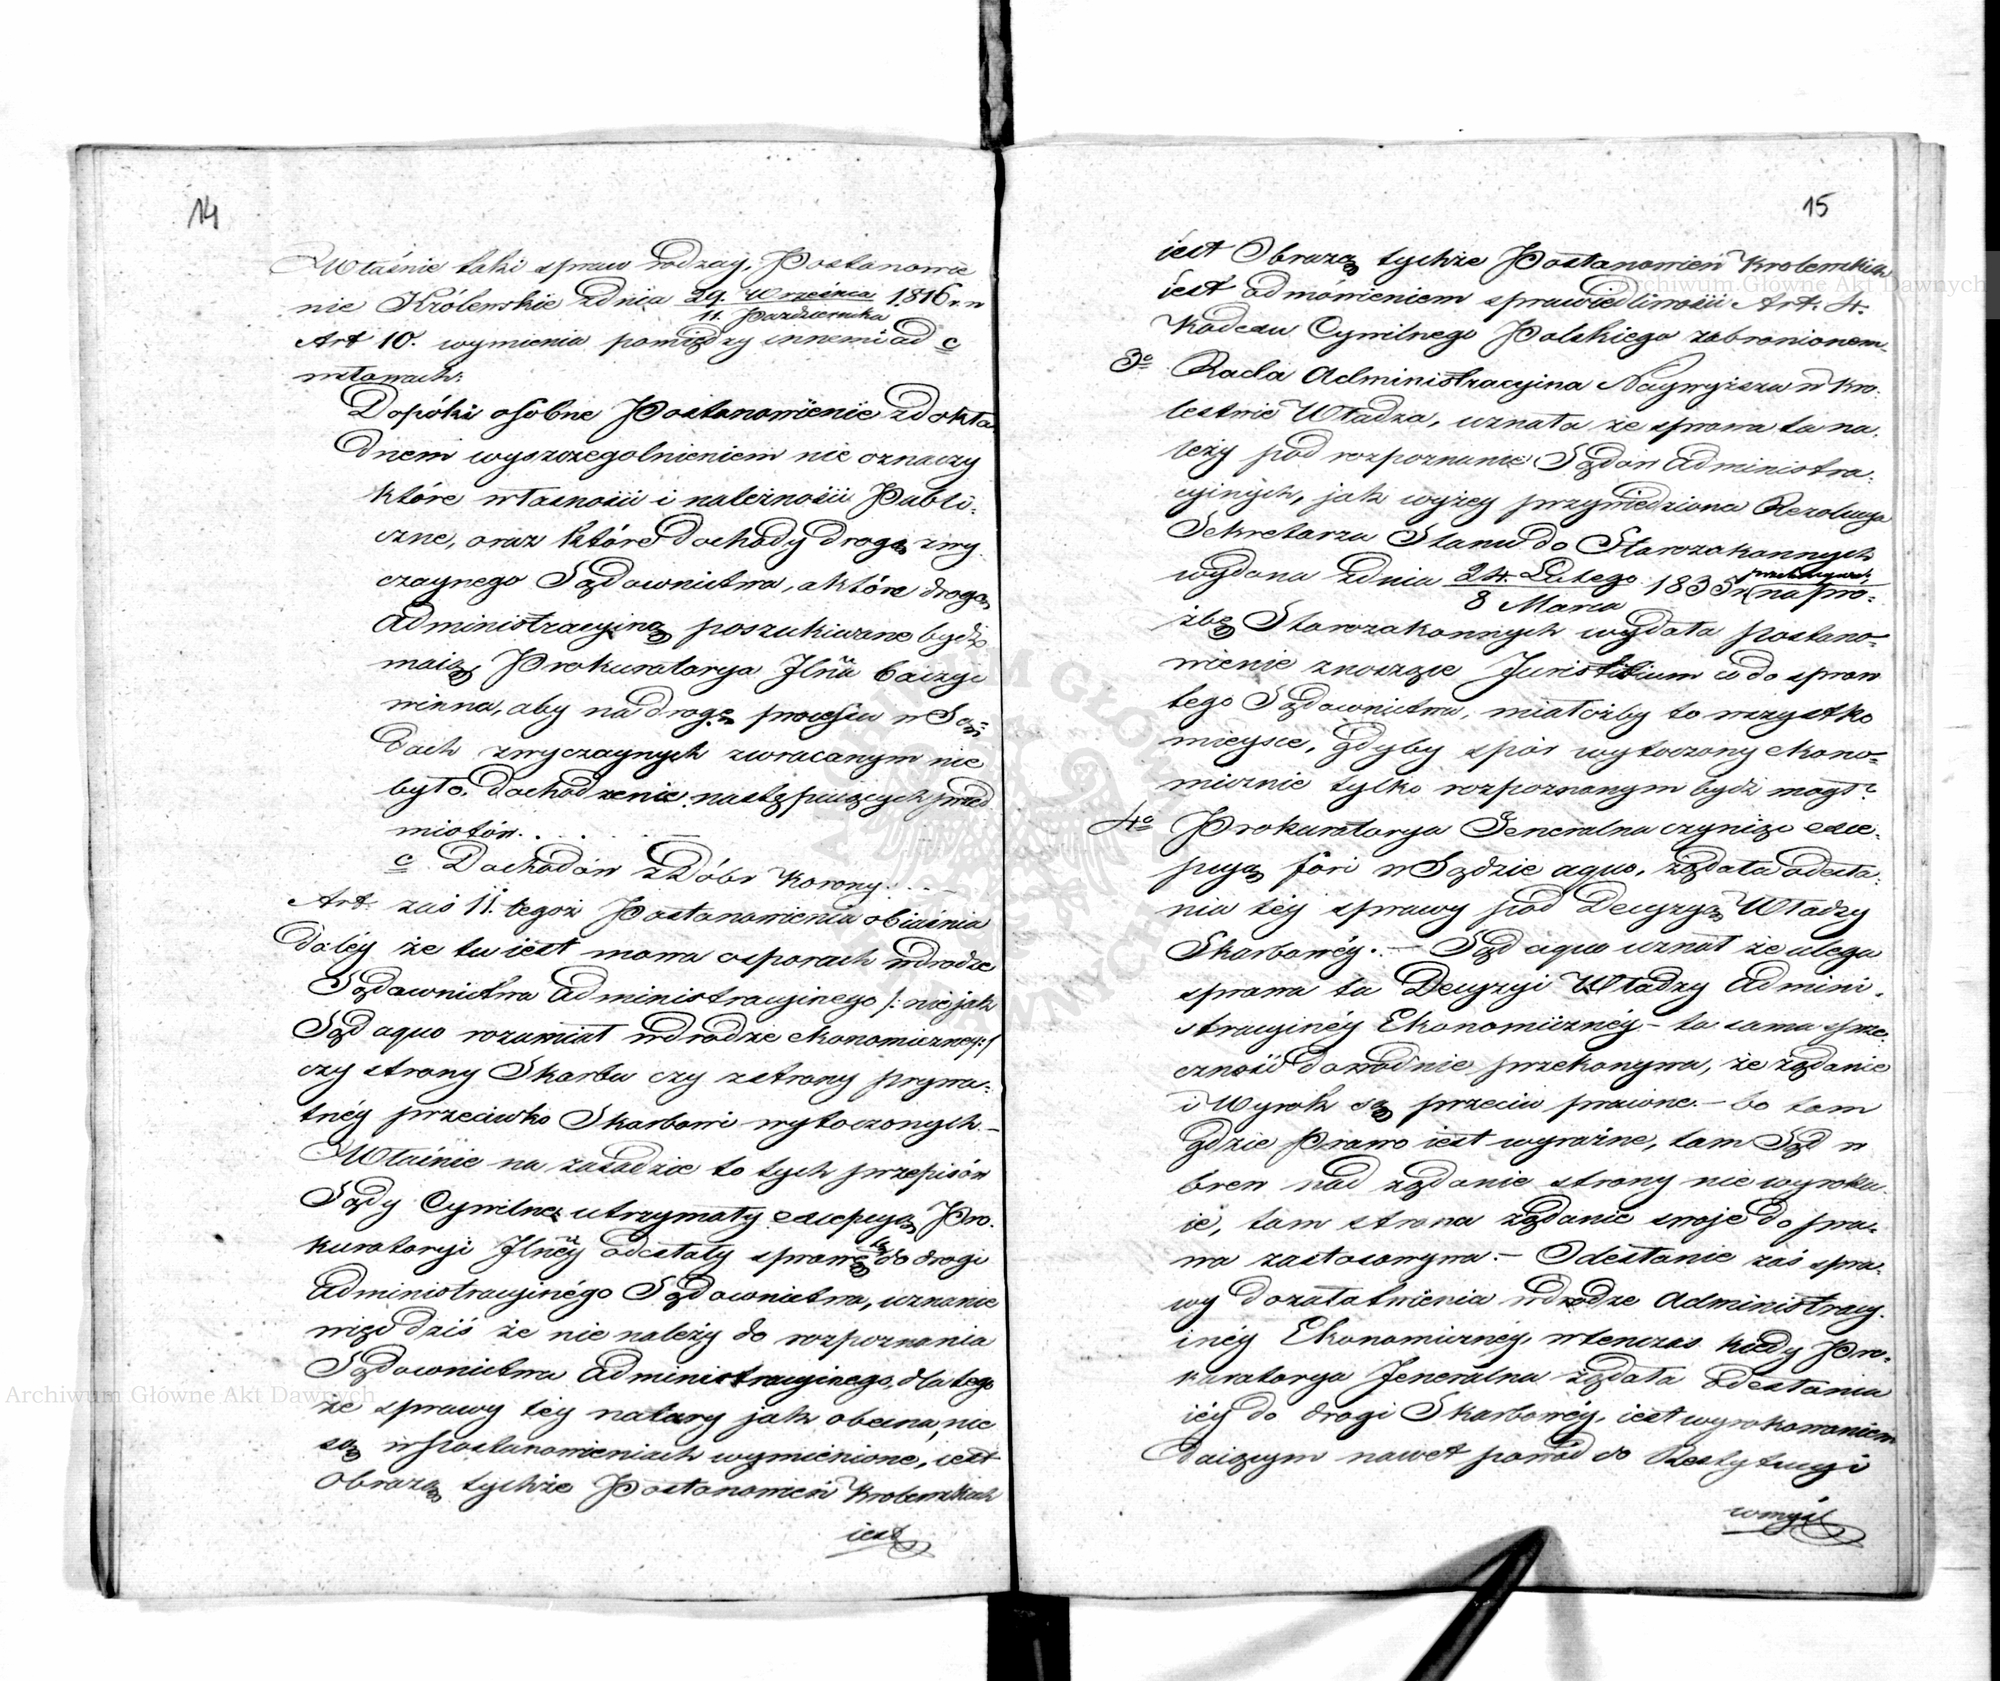 14
Właśnie taki spraw rodzaj, Postanowie
nie Królewskie z dnia 29. Września 1816 r. w
11. Października
Art 10. wymienia pomiędzy innemi ad c
w słowach:
Dopóki osobne Postanowienie z dokła
dnem wyszczegolnieniem nie oznaczy
które własności i należności Publi-
czne, oraz które dochody drogą zwy
czaynego Sądownictwa, a które drogą
Administracyiną poszukiwane bydź
maią, Prokuratorya Jlna baczyć
winna, aby na drogę processu w Są-
dach zwyczaynych zwracanym nie
było dochodzenie następuiących przed
miotów. . . . . .
c Dochodów z Dóbr Korony. . . .
Art: zaś 11. tegoż Postanowienia obiaśnia
daléy że tu iest mowa o sporach w drodze
Sądownictwa Administracyinego /: nie jak
Sąd aquo rozumiał w drodze ekonomicznéy :/
czy strony Skarbu czy z strony prywa-
tnéy przeciwko Skarbowi wytoczonych.–
Właśnie na zasadzie to tych przepisów
Sądy Cywilne utrzymały excepcyą Pro-
kuratoryi Jlnéy odesłały sprawę tę do drogi
Administracyinégo Sądownictwa, uznanie
więc dziś że nie należy do rozpoznania
Sądownictwa Administracyinego, dla tego
że sprawy téy natury jak obecna, nie
są w Postanowieniach wymienione, iest
obrazą tychże Postanowień Krolewskich
iest
15
iest Obrazą tychże Postanowień Krolewskich
iest odmówieniem sprawiedliwości Art: 4.
Kodexu Cywilnego Polskiego zabronionem.
3o Rada Administracyina Naywyższa w Kro-
lestwie Władza, uznała że sprawa ta na-
leży pod rozpoznanie Sądów Administra-
cyinych, jak wyżey przywiedziona Rezolucya
Sekretarza Stanu do Starozakonnych
wydana z dnia 24. Lutego 1835 r. na pro-
8 Marca
źbę Starozakonnych wydała postano-
wienie znoszące Juristitium co do spraw
tego Sądownictwa, miałożby to wszystko
mieysce, gdyby spór wytoczony ekono-
micznie tylko rozpoznanym bydź mógł?
4o Prokuratorya Generalna czyniąc exce-
pcyą fori w Sądzie aquo, żądała odesła-
nia téy sprawy pod Decyzyą Władzy
Skarbowéy.– Sąd aquo uznał że ulega
sprawa ta Decyzyi Władzy Admini-
stracyinéy Ekonomicznéy – ta sama sprze-
czność dowodnie przekonywa, że żądanie
i Wyrok są przeciw prawne.– bo tam
gdzie Prawo iest wyraźne, tam Sąd w
brew nad żądanie strony nie wyroku-
ie, tam strona żądanie swoje do pra-
wa zastosowywa.– Odesłanie zaś spra-
wy do załatwienia w drodze Administracy-
inéy Ekonomicznéy, wtenczas kiedy Pro-
kuratorya Jeneralna żądała odesłania
iéy do drogi Skarbowéy, iest wyrokowaniem
daiącym nawet powód do Restytucyi
w myśl
Archiwum Główne Akt Dawnych
Archiwum Główne Akt Dawnych